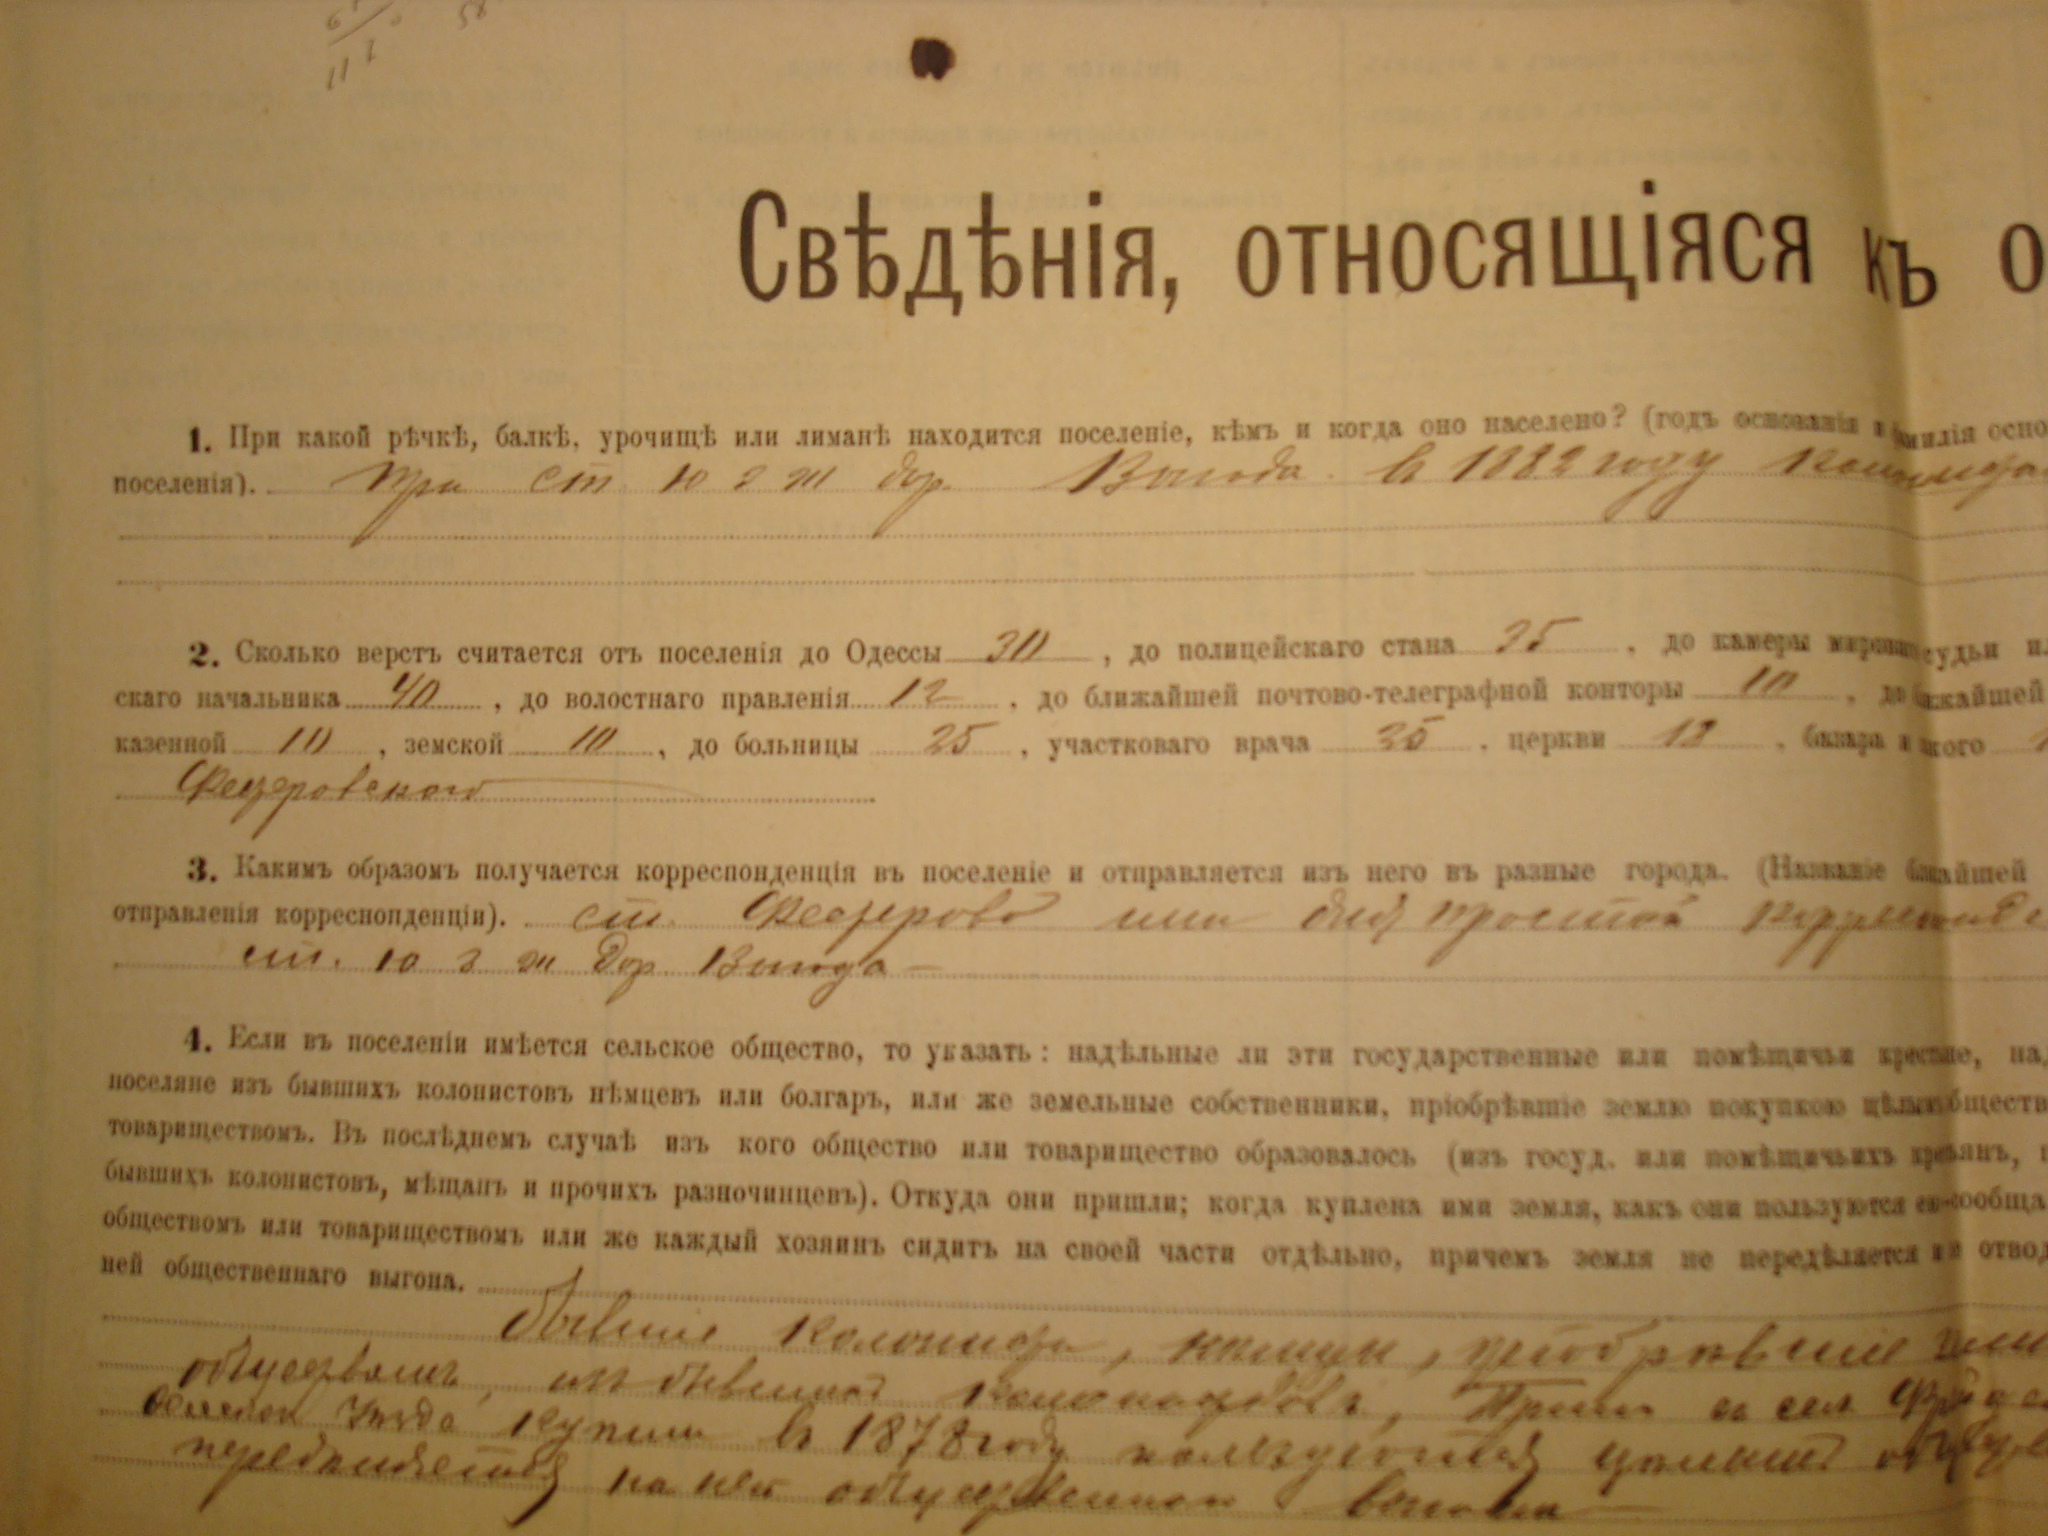 Свѣдѣнія, относящіяся къ о
1. При какой рѣчкѣ, балкѣ, урочищѣ или лиманѣ находится поселеніе, кѣмъ и когда оно населено? (годъ основанія и фамилія осно
поселенія). При ст ю з ж дор. Выгода. въ 1882 году
2. Сколько верстъ считается отъ поселенія до Одессы 30, до полицейскаго стана 35, до камеры мироваго судьи ил
скаго начальника 40, до волостнаго правленія 12, до ближайшей почтово-телеграфной конторы 10, до ближайшей
казенной 10, земской 10, до больницы 25, участковаго врача 35, церкви 18, базара и какого 1
3. Какимъ образомъ получается корреспонденція въ поселеніе и отправляется изъ него въ разные города. (Названіе ближайшей
отправленія корреспонденціи). ст. простой
ст. ю з ж дор Выгода
4. Если въ поселеніи имѣется сельское общество, то указать: надѣльные ли эти государственные или помѣщичьи крестьяне, над
поселяне изъ бывшихъ колонистовъ нѣмцевъ или болгаръ, или же земельные собственники, пріобрѣвшіе землю покупкою цѣлымъ обществ
товариществомъ. Въ послѣднемъ случаѣ изъ кого общество или товарищество образовалось (изъ госуд. или помѣщичьихъ крестьянъ, п
бывшихъ колонистовъ, мѣщанъ и прочихъ разночинцевъ). Откуда они пришли; когда куплена ими земля, какъ они пользуются ею-сообща
обществомъ или товариществомъ или же каждый хозяинъ сидитъ на своей части отдѣльно, причемъ земля не передѣляется и отвод
ней общественнаго выгона.
бывшіе колонисты, пріобрѣвшіе
обществомъ, изъ бывшихъ колонистовъ, Пришли
купили въ 1878 году пользуются
на ней